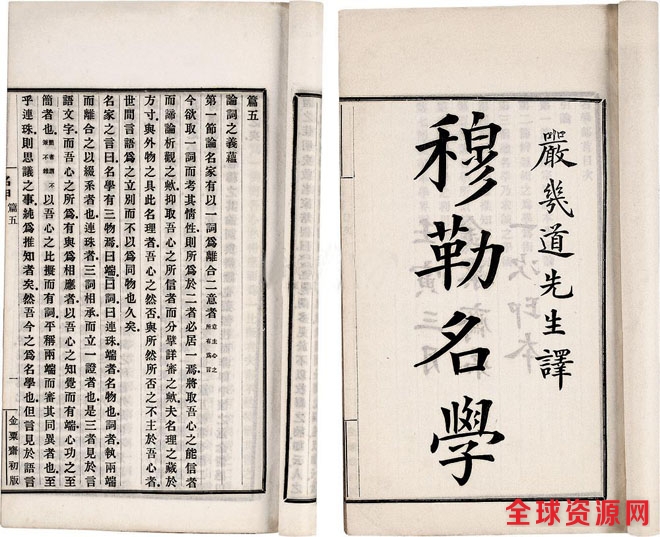 嚴幾道先生譯
穆勒名學
篇五
論詞之義蘊
第一節論名家有以一詞爲離合二意者意主心之所有爲言
今欲取一詞而考其情性則所爲於二者必居一焉將取吾心之能信者
而諦論析觀之歟抑取吾心之所信者而分擘詳審之歟夫名理之藏於
方寸與外物之具此名理者吾心之然否與所然所否之不主於吾心者
世間言語爲之立別而不以爲同物也久矣
名家之言曰名學有三物焉曰端曰詞曰連珠端者名物也詞者執兩端
而離合之以綴系者也連珠者三詞相承而立一證者也是三者見於言
語文字而吾心之所爲有與爲相應者以吾心之知覺而有端心功之至
簡者也以吾心之比擬而有詞平稱兩端而審其同異者也至
乎連珠則思議之事純爲推知者矣然吾今之爲名學也但言見於語言
名甲
篇五
一
金粟齋初版
全球资源网